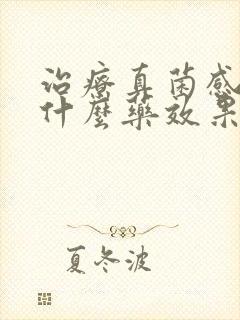 治疗真菌感
什麼药效果
夏冬波